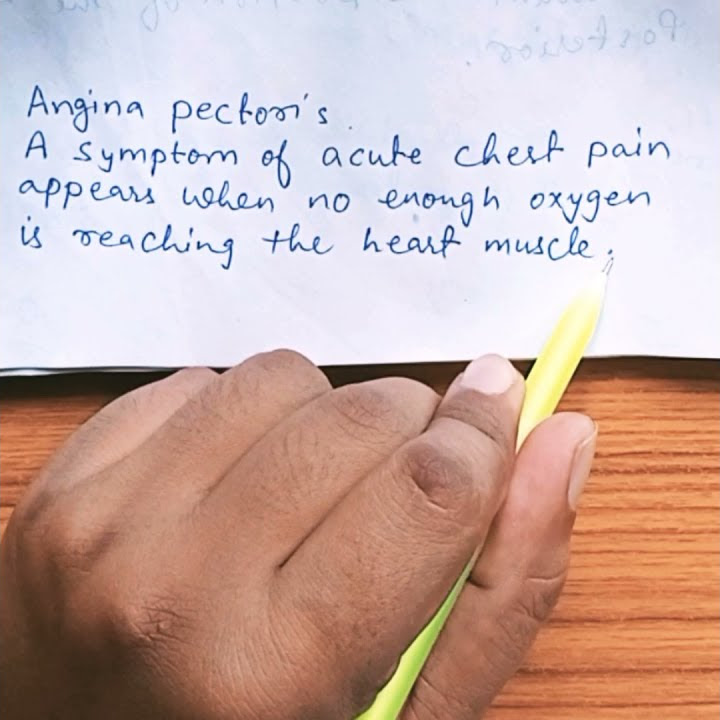 Angina pectoris.
A symptom of acute chest pain
appears when no enough oxygen
is reaching the heart muscle.